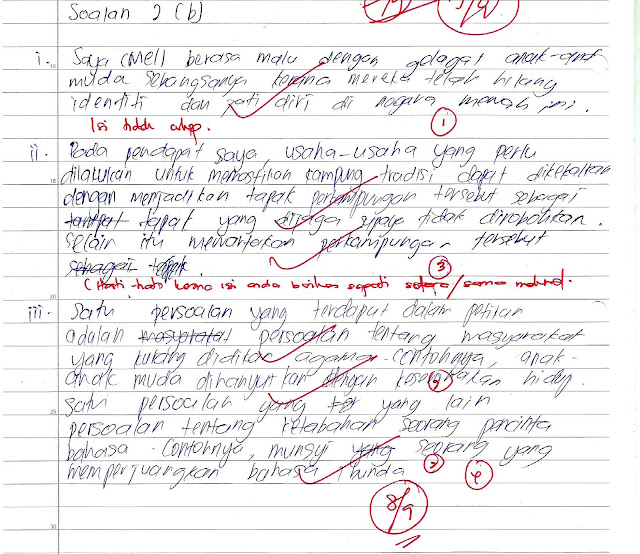 Soalan 2 (b)
i. Saya (Mel) berasa malu dengan gelagat anak-anak
10
muda sebangsanya kerana mereka telah hilang
identiti dan jati diri di negara merdeka ini.
Isi tidak cukup. 1
ii. Pada pendapat saya, usaha-usaha yang perlu
15
dilakukan untuk memastikan kampung tradisi dapat dikekalkan
dengan menjadikan tapak perkampungan tersebut sebagai
tempat tapak yang dijaga supaya tidak dirobohkan.
Selain itu mewartakan perkampungan tersebut
sebagai tapak. 3
20
(Hati-hati kerana isi anda berikan seperti setara/sama maksud.
iii. Satu persoalan yang terdapat dalam petikan
adalah masyarakat persoalan tentang masyarakat
yang kurang didikan agama. Contohnya, anak-
anak muda dihanyutkan dengan hidup.
25
Satu persoalan yang yang lain
persoalan tentang ketabahan seorang pencinta
bahasa. Contohnya, munsyi yang seorang yang
memperjuangkan bahasa ibunda 2 4
8/9
30